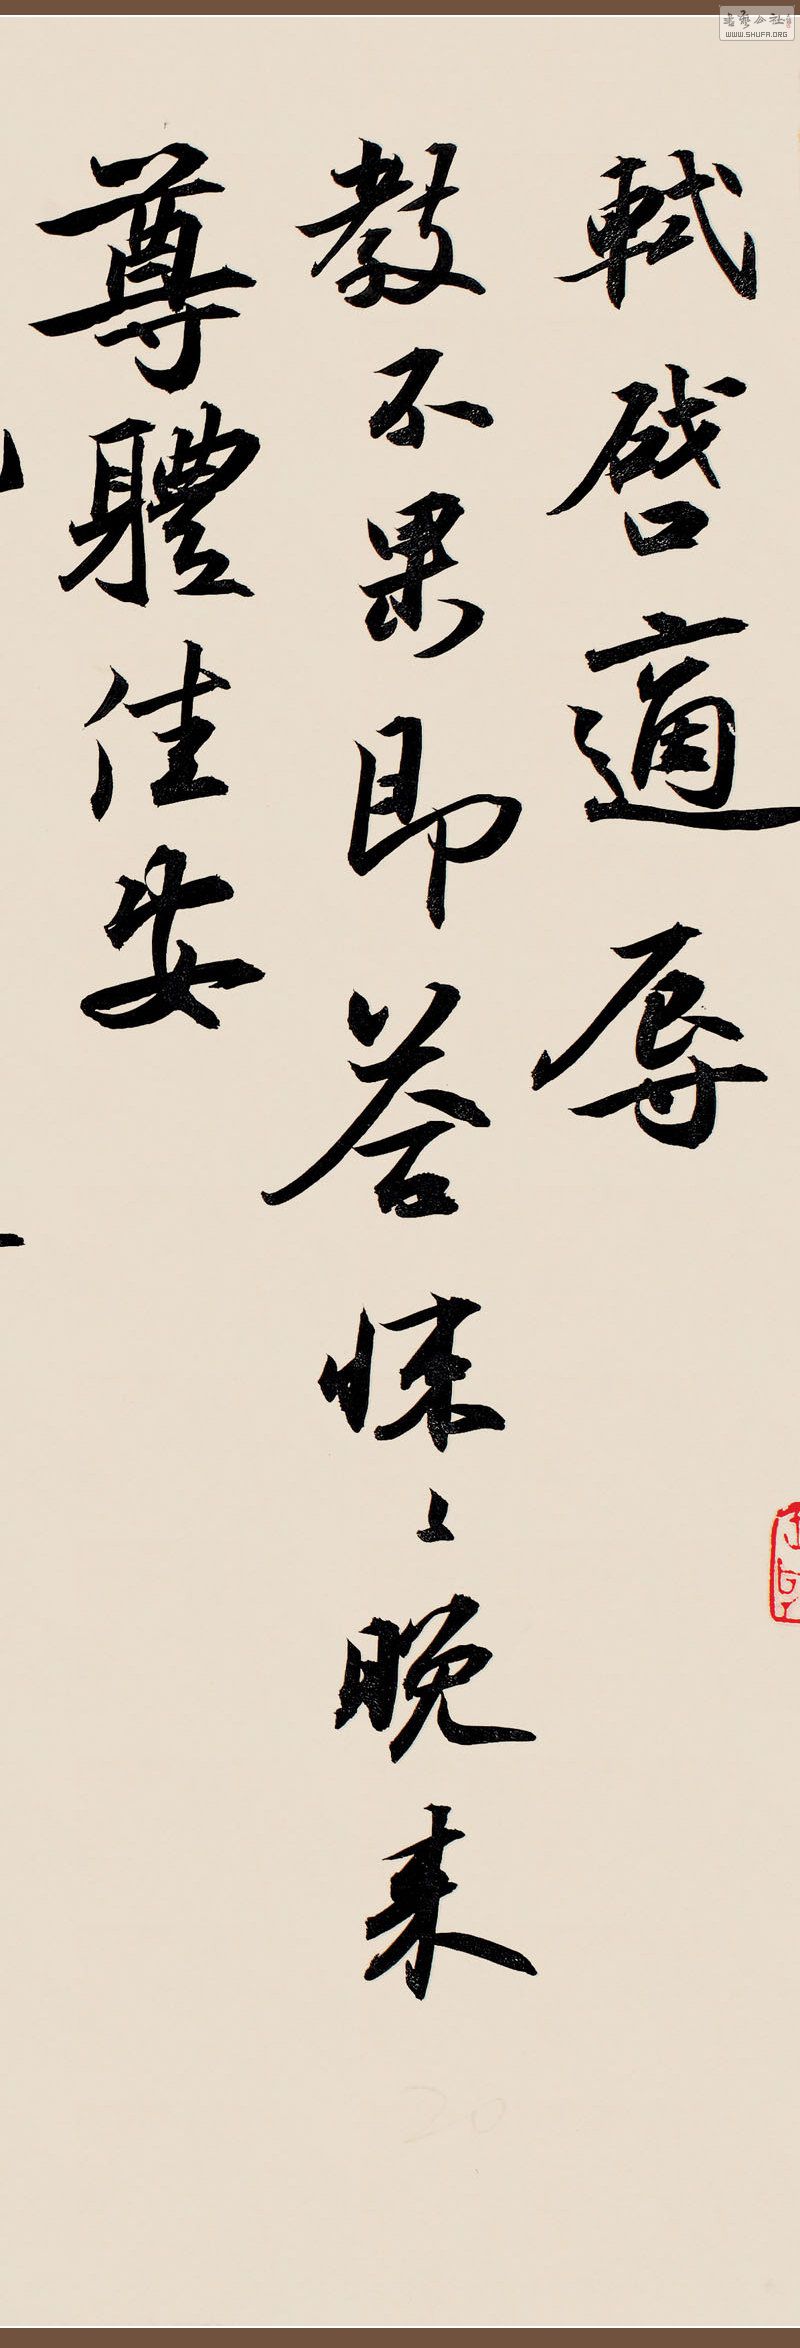 軾啓適辱
教不果即荅悚〻晚来
尊體佳安
書藝公社
WWW.SHUFA.ORG